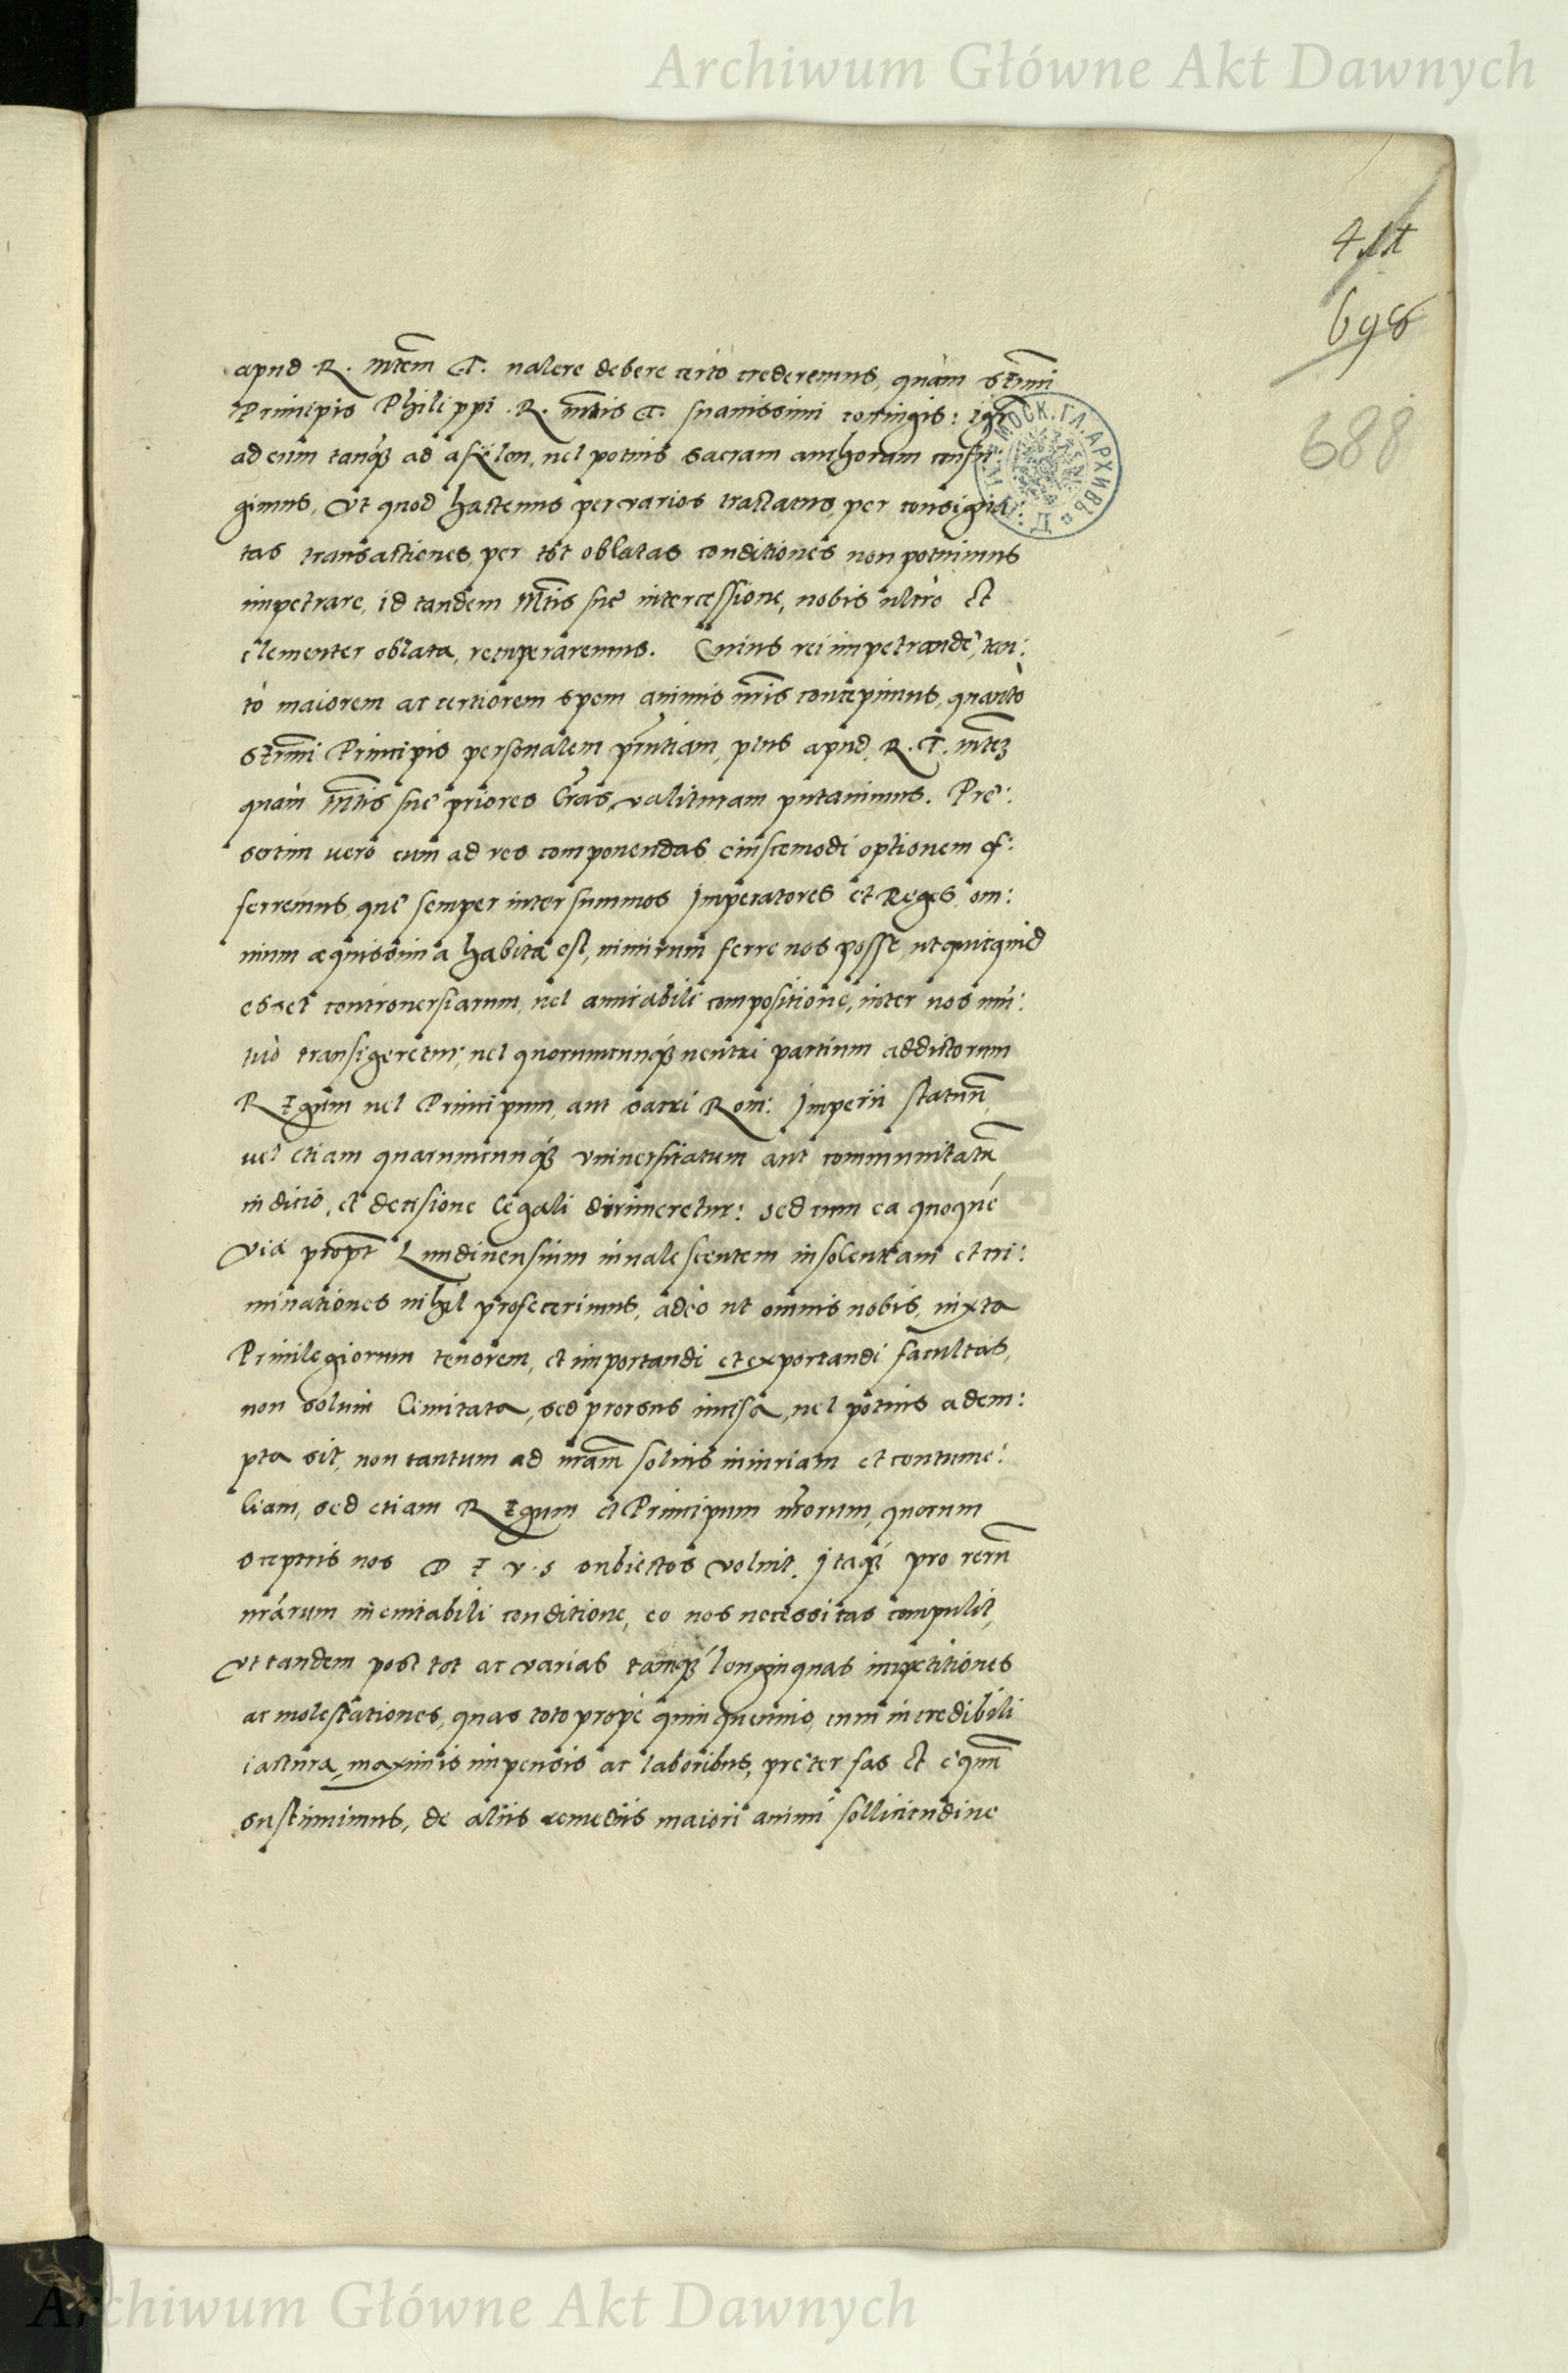 Archiwum Główne Akt Dawnych
698
688
apud R. mtem T. ualere debere certo crederemus, quàm sermi
Principis Philippi R. mtis T. suauissimi coniugis: igr
ad eum tanq́ȝ ad asylon, uel potius sacram anchoram confu:
gimus, Vt quod hactenus per varios tractatus, per consigna:
tas transactiones, per tot oblatas conditiones non potuimus
impetrare, id tandem Mtis suę intercessione, nobis ultrò et
clementer oblata, recuperaremus. Cuius rei impetrandę, tan:
tò maiorem ac certiorem spem animis nris concepimus, quantò
sermi Principis personalem prntiam, plus apud R. T. mteȝ
quàm Mtis suę priores lras, valituram putauimus. Prę:
sertim uerò cum ad res componendas, eiuscemodi optionem of:
ferremus, quę semper inter summos Imperatores et Reges, om:
nium æquissima habita est, nimirum ferre nos posse, ut quicquid
esset controuersiarum, uel amicabili compositione, inter nos mu:
tuò transigeretur, uel quorumcunq́ȝ neutri partium addictorum
REgum uel Principum, aut sacri Rom: Imperii statuum,
uel etiam quarumcunq́ȝ vniuersitatum aut communitatū
iudicio, et decisione legali dirimeretur: sed cum ea quoque
via propt Lundinensium inualescentem insolentiam et cri:
minationes nihil profecerimus, adeò ut omnis nobis, iuxta
Priuilegiorum tenorem, et importandi et exportandi facultas,
non solum limitata, sed prorsus incisa, uel potius adem:
pta sit, non tantum ad nram solius iniuriam et contume:
liam, sed etiam REgum et Principum nrorum, quorum
sceptris nos DEVS subiectos voluit. Itaq́ȝ pro rerū
nrarum ineuitabili conditione, eo nos necessitas compulit,
vt tandem post tot ac varias tamq́ȝ longinquas impetitiones
ac molestationes, quas toto propè quinquennio, cum incredibili
iactura, maximis impensis ac laboribus, pręter fas et ęquū
sustinuimus, de aliis remediis maiori animi sollicitudine
Archiwum Główne Akt Dawnych